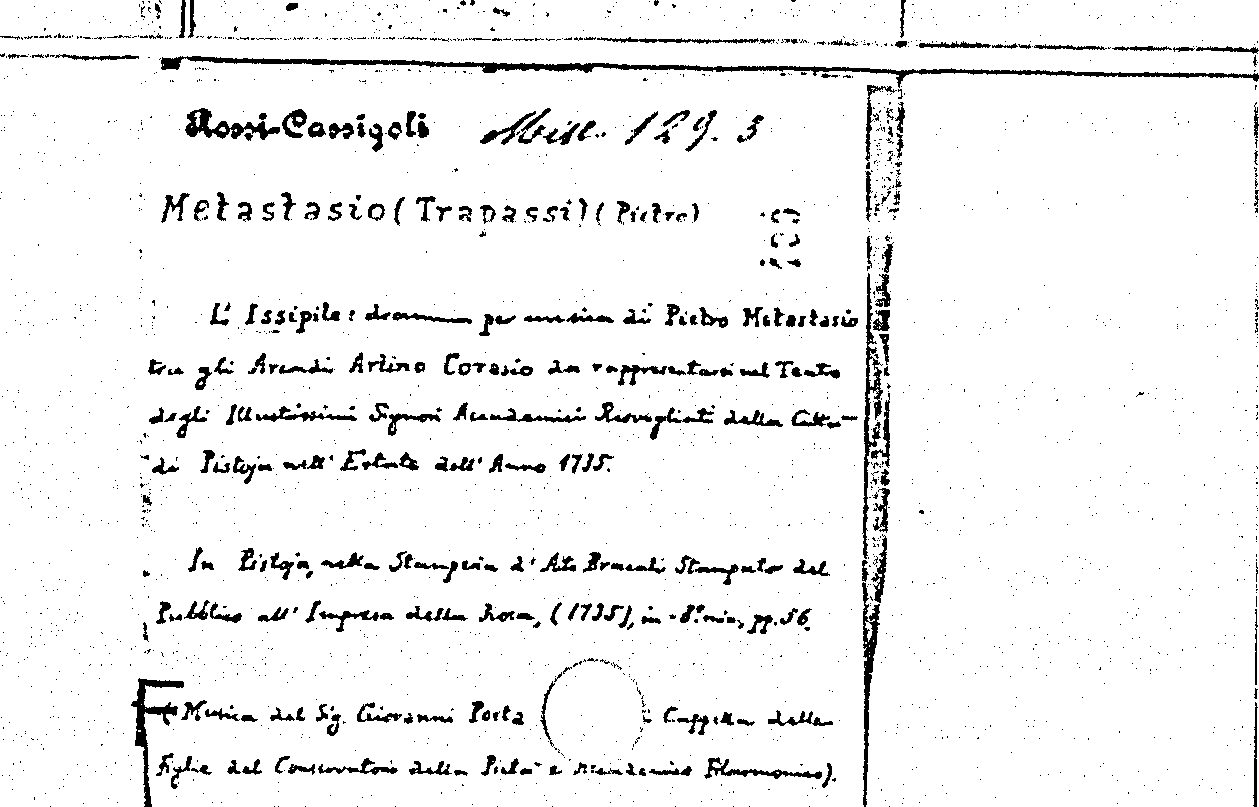 Rossi-Cassigoli Misc. 129. 3
Metastasio (Trapassi) (Pietro)
L' Issipile: dramma per musica di Pietro Metastasio
tra gli Arcadi Artino Corasio da rappresentarsi nel Teatro
degli Illustrissimi Signori Accademici Risvegliati della Città
di Pistoja nell' Estate dell' Anno 1735.
In Pistoja, nella Stamperia d' Atto Bracali Stampator del
Pubblico all' Impresa della Rosa, (1735), in-8°. min., pp. 56.
(Musica del Sig. Giovanni Porta Cappella delle
Figlie del Conservatorio della Pietà e Accademico Filarmonico).